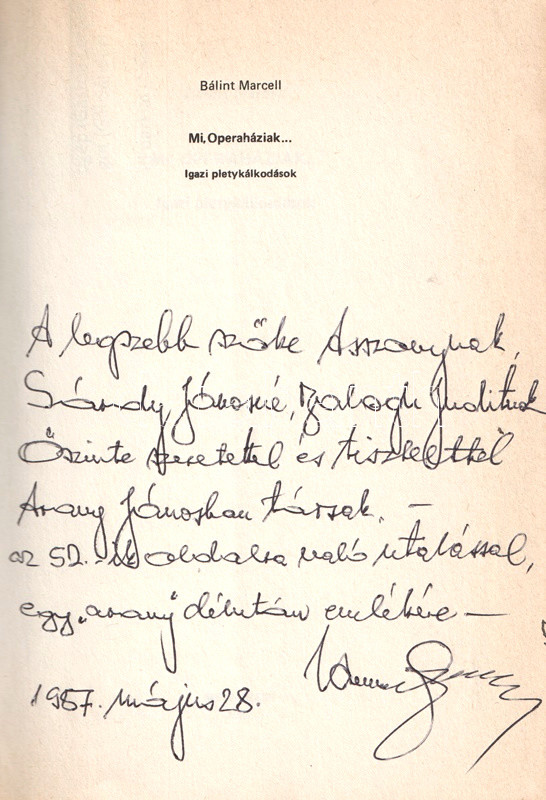 Bálint Marcell
Mi, Operaháziak...
Igazi pletykálkodások
A legszebb szőke Asszonynak,
Sárdy Jánosné, Balogh Juditnak
Őszinte szeretettel és tisztelettel
Arany Jánosban társak. —
az 52.-ik oldalra való utalással,
egy „arany” délután emlékére —
1987. május 28.